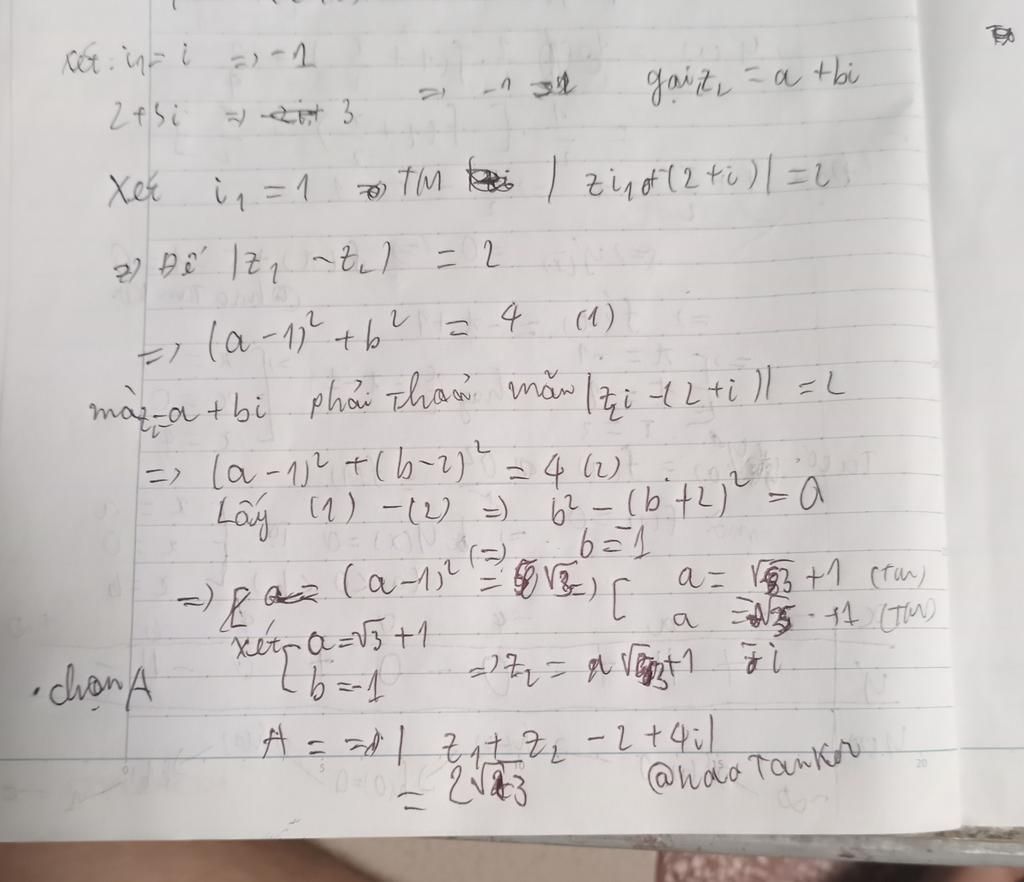 xét: i₁ = i => -1
2+3i => 3 => -1 gọi z₂ = a + bi
Xét i₁ = 1 => TM | zi₁ (2+i)| = 2
=> Để |z₁ - z₂| = 2
=> (a-1)² + b² = 4 (1)
mà z₂ = a + bi phải thoả mãn |z₂i - (2+i)| = 2
=> (a-1)² + (b-2)² = 4 (2)
Lấy (1) - (2) => b² - (b+2)² = 0
(=) b = -1
=> (a-1)² = => [ a = √3 + 1 (TM)
a = -√3 + 1 (TM)
xét a = √3 + 1
b = -1 => z₂ = √3 + 1 - i
. chọn A
A = => | z₁ + z₂ - 2 + 4i|
= 2√3